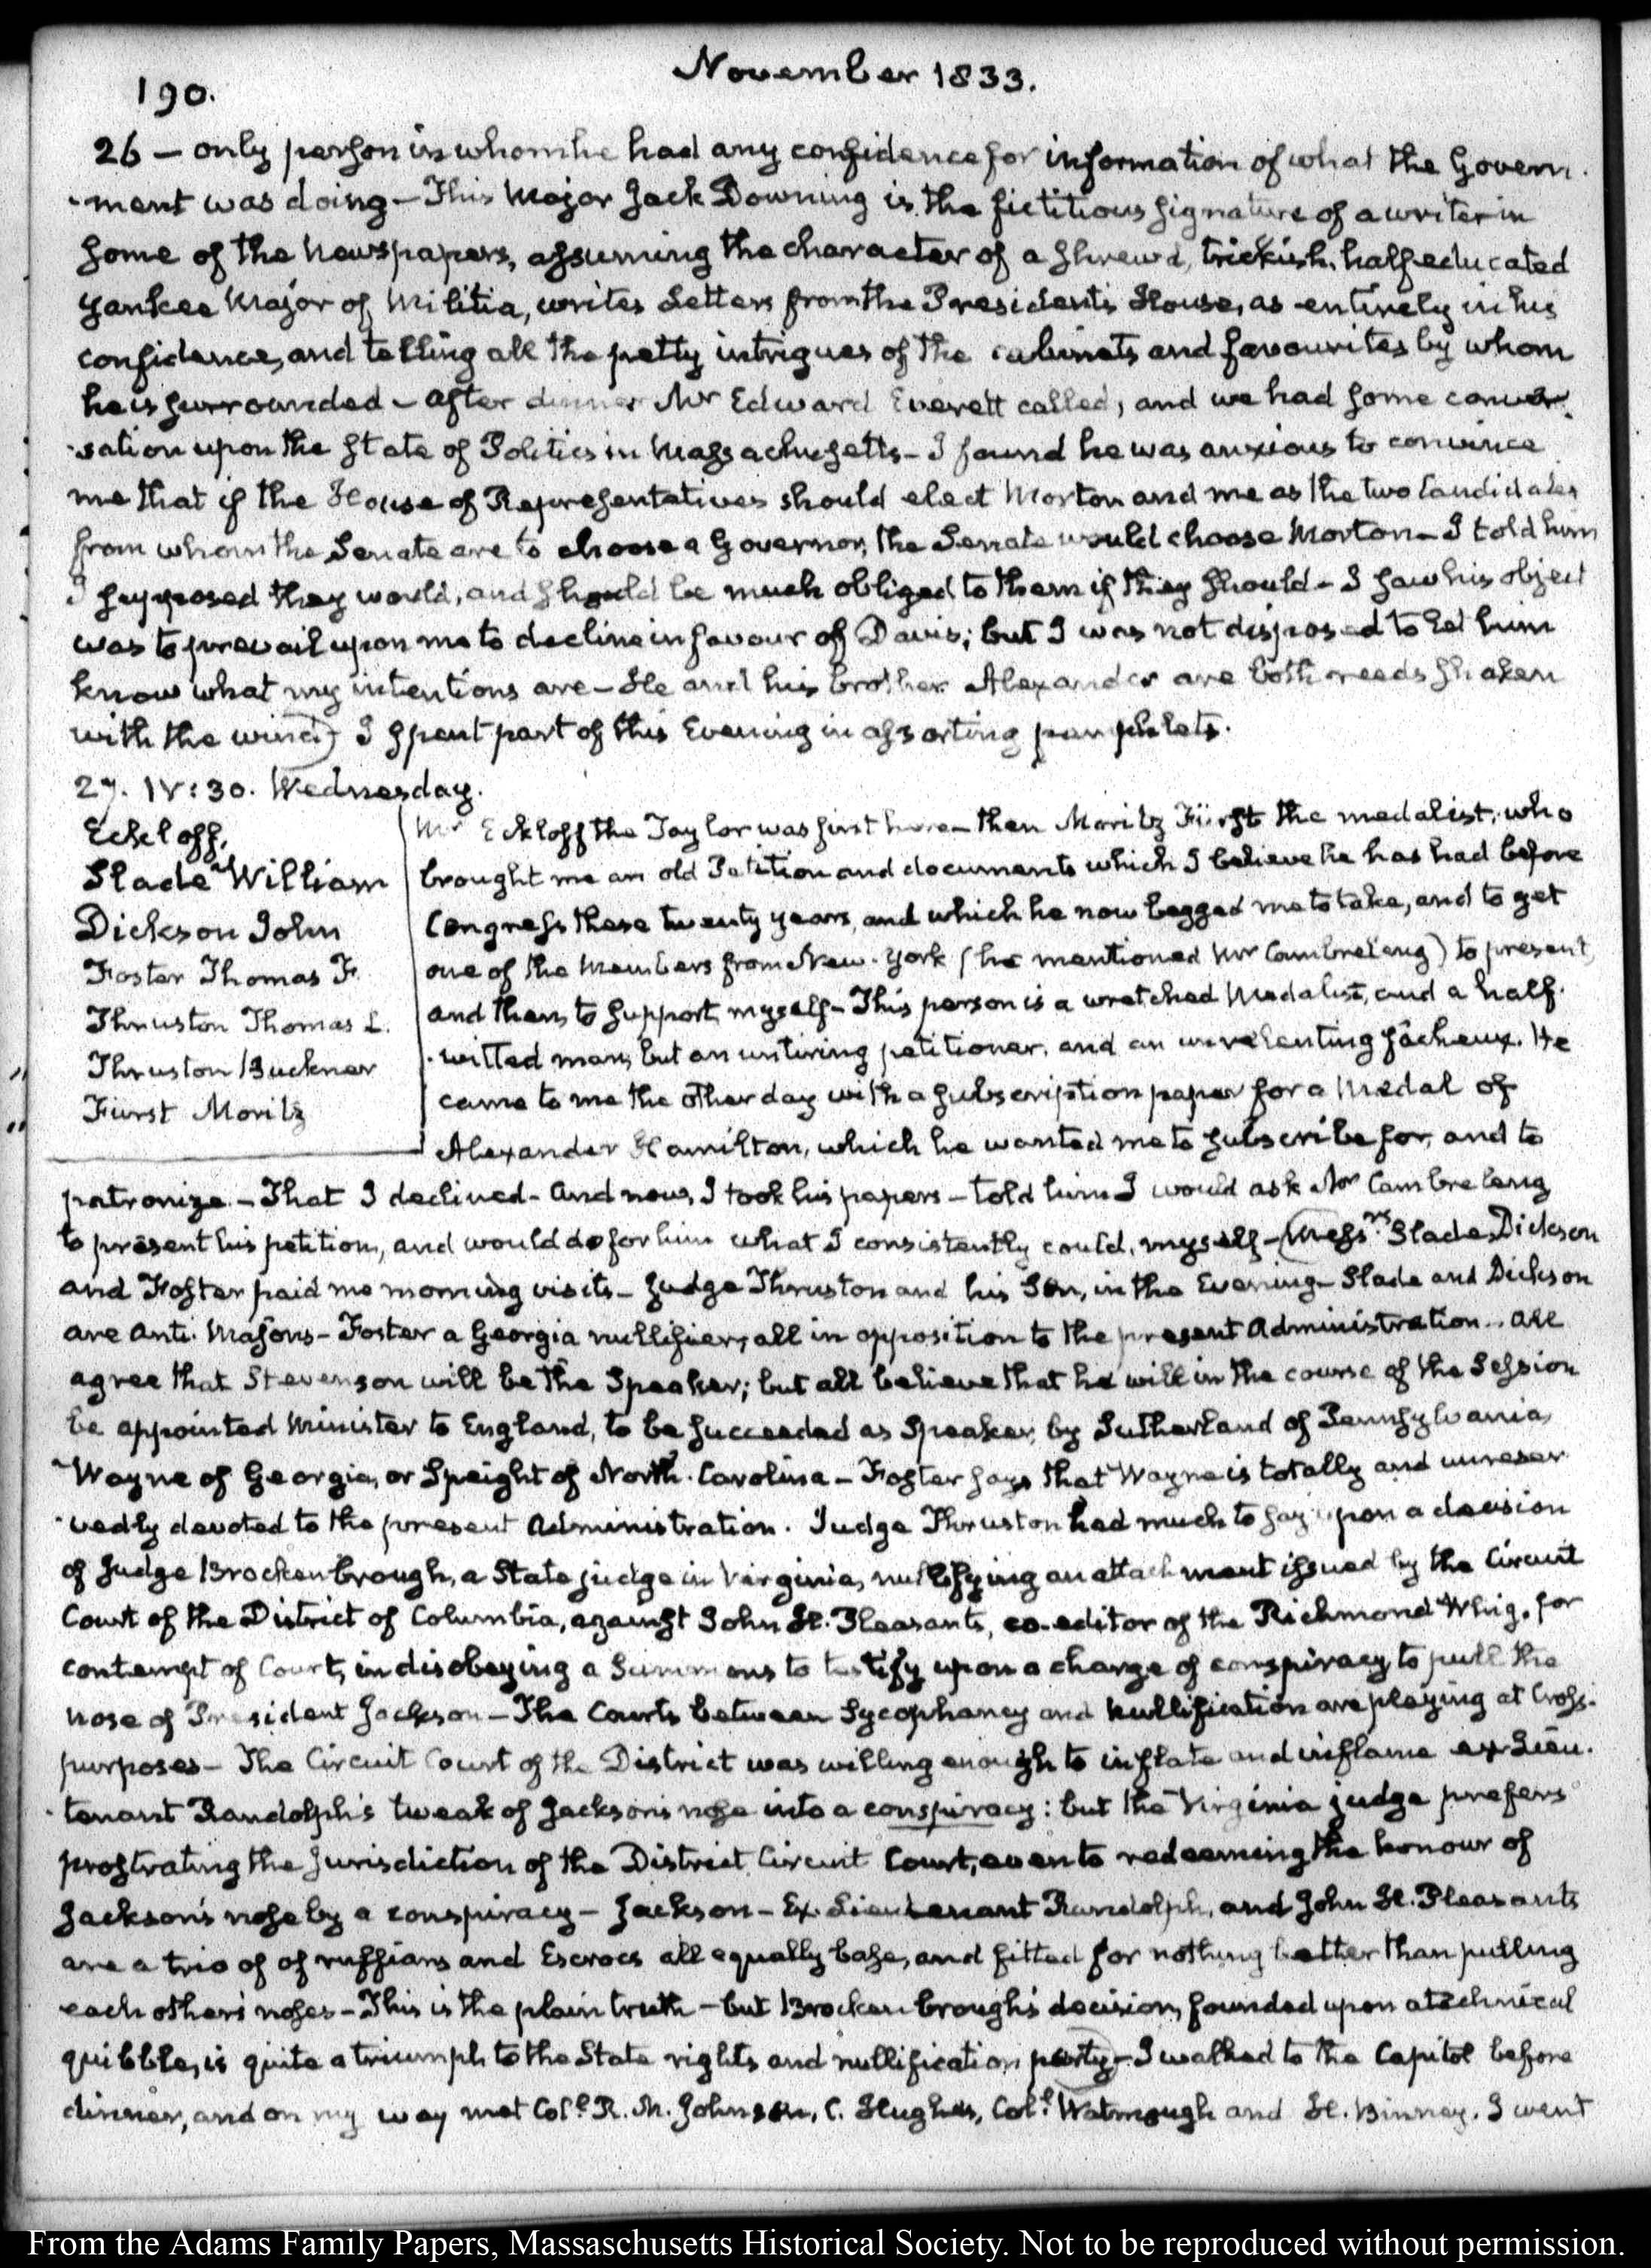 190.
November 1833.
26 — only person in whom he had any confidence for information of what the Govern-
-ment was doing — This Major Jack Downing is the fictitious signature of a writer in
some of the Newspapers, assuming the character of a shrewd, trickish, half educated
Yankee Major of Militia, writes Letters from the President's House, as entirely in his
confidence, and telling all the petty intrigues of the cabinets and favourites by whom
he is surrounded — After dinner Mr Edward Everett called, and we had some conver-
-sation upon the state of Politics in Massachusetts — I found he was anxious to convince
me that if the House of Representatives should elect Morton and me as the two Candidates
from whom the Senate are to choose a Governor, the Senate would choose Morton — I told him
I supposed they would, and should be much obliged to them if they should — I saw his object
was to prevail upon me to decline in favour of Davis; but I was not disposed to let him
know what my intentions are — He and his brother Alexander are both reeds shaken
with the wind) I spent part of this Evening in assorting pamphlets.
27. IV:30. Wednesday.
Eckloff.
Slade William
Dickson John
Foster Thomas F.
Thruston Thomas L.
Thruston Buckner
Fürst Moritz
Mr Eckloff the Taylor was first here — then Moritz Fürst the medalist, who
brought me an old Petition and documents which I believe he has had before
Congress these twenty years, and which he now begged me to take, and to get
one of the Members from New-York (he mentioned Mr Cambreleng) to present,
and then, to support myself — This person is a wretched Medalist, and a half-
-witted man, but an untiring petitioner, and an unrelenting fâcheux. He
came to me the other day with a subscription paper for a Medal of
Alexander Hamilton, which he wanted me to subscribe for, and to
patronize. — That I declined — And now, I took his papers — told him I would ask Mr Cambreleng
to present his petition, and would do for him what I consistently could, myself — (Messrs Slade, Dickson
and Foster paid me morning visits — Judge Thruston and his Son, in the Evening — Slade and Dickson
are Anti-Masons — Foster a Georgia nullifier, all in opposition to the present Administration.. All
agree that Stevenson will be the Speaker; but all believe that he will in the course of the Session
be appointed Minister to England, to be succeeded as Speaker, by Sutherland of Pennsylvania,
Wayne of Georgia, or Speight of North-Carolina — Foster says that Wayne is totally and unreser-
-vedly devoted to the present Administration. Judge Thruston had much to say upon a decision
of Judge Brockenbrough, a State judge in Virginia, nullifying an attachment issued by the Circuit
Court of the District of Columbia, against John H. Pleasants, co-editor of the Richmond Whig, for
contempt of Court, in disobeying a Summons to testify upon a charge of conspiracy to pull the
nose of President Jackson — The Courts between Sycophancy and Nullification are playing at Cross-
purposes — The Circuit Court of the District was willing enough to inflate and inflame ex-Lieu-
-tenant Randolph's tweak of Jackson's nose into a conspiracy: but the Virginia judge prefers
prostrating the Jurisdiction of the District Circuit Court, even to redeeming the honour of
Jackson's nose by a conspiracy — Jackson — Ex-Lieutenant Randolph, and John H. Pleasants
are a trio of of ruffians and Escrocs all equally base, and fitted for nothing better than pulling
each others' noses — This is the plain truth — but Brockenbrough's decision, founded upon a technical
quibble, is quite a triumph to the State rights and nullification party — I walked to the Capitol before
dinner, and on my way met Coll. R. M. Johnson, C. Hughes, Coll. Watmough and H. Binney. I went
From the Adams Family Papers, Massachusetts Historical Society. Not to be reproduced without permission.